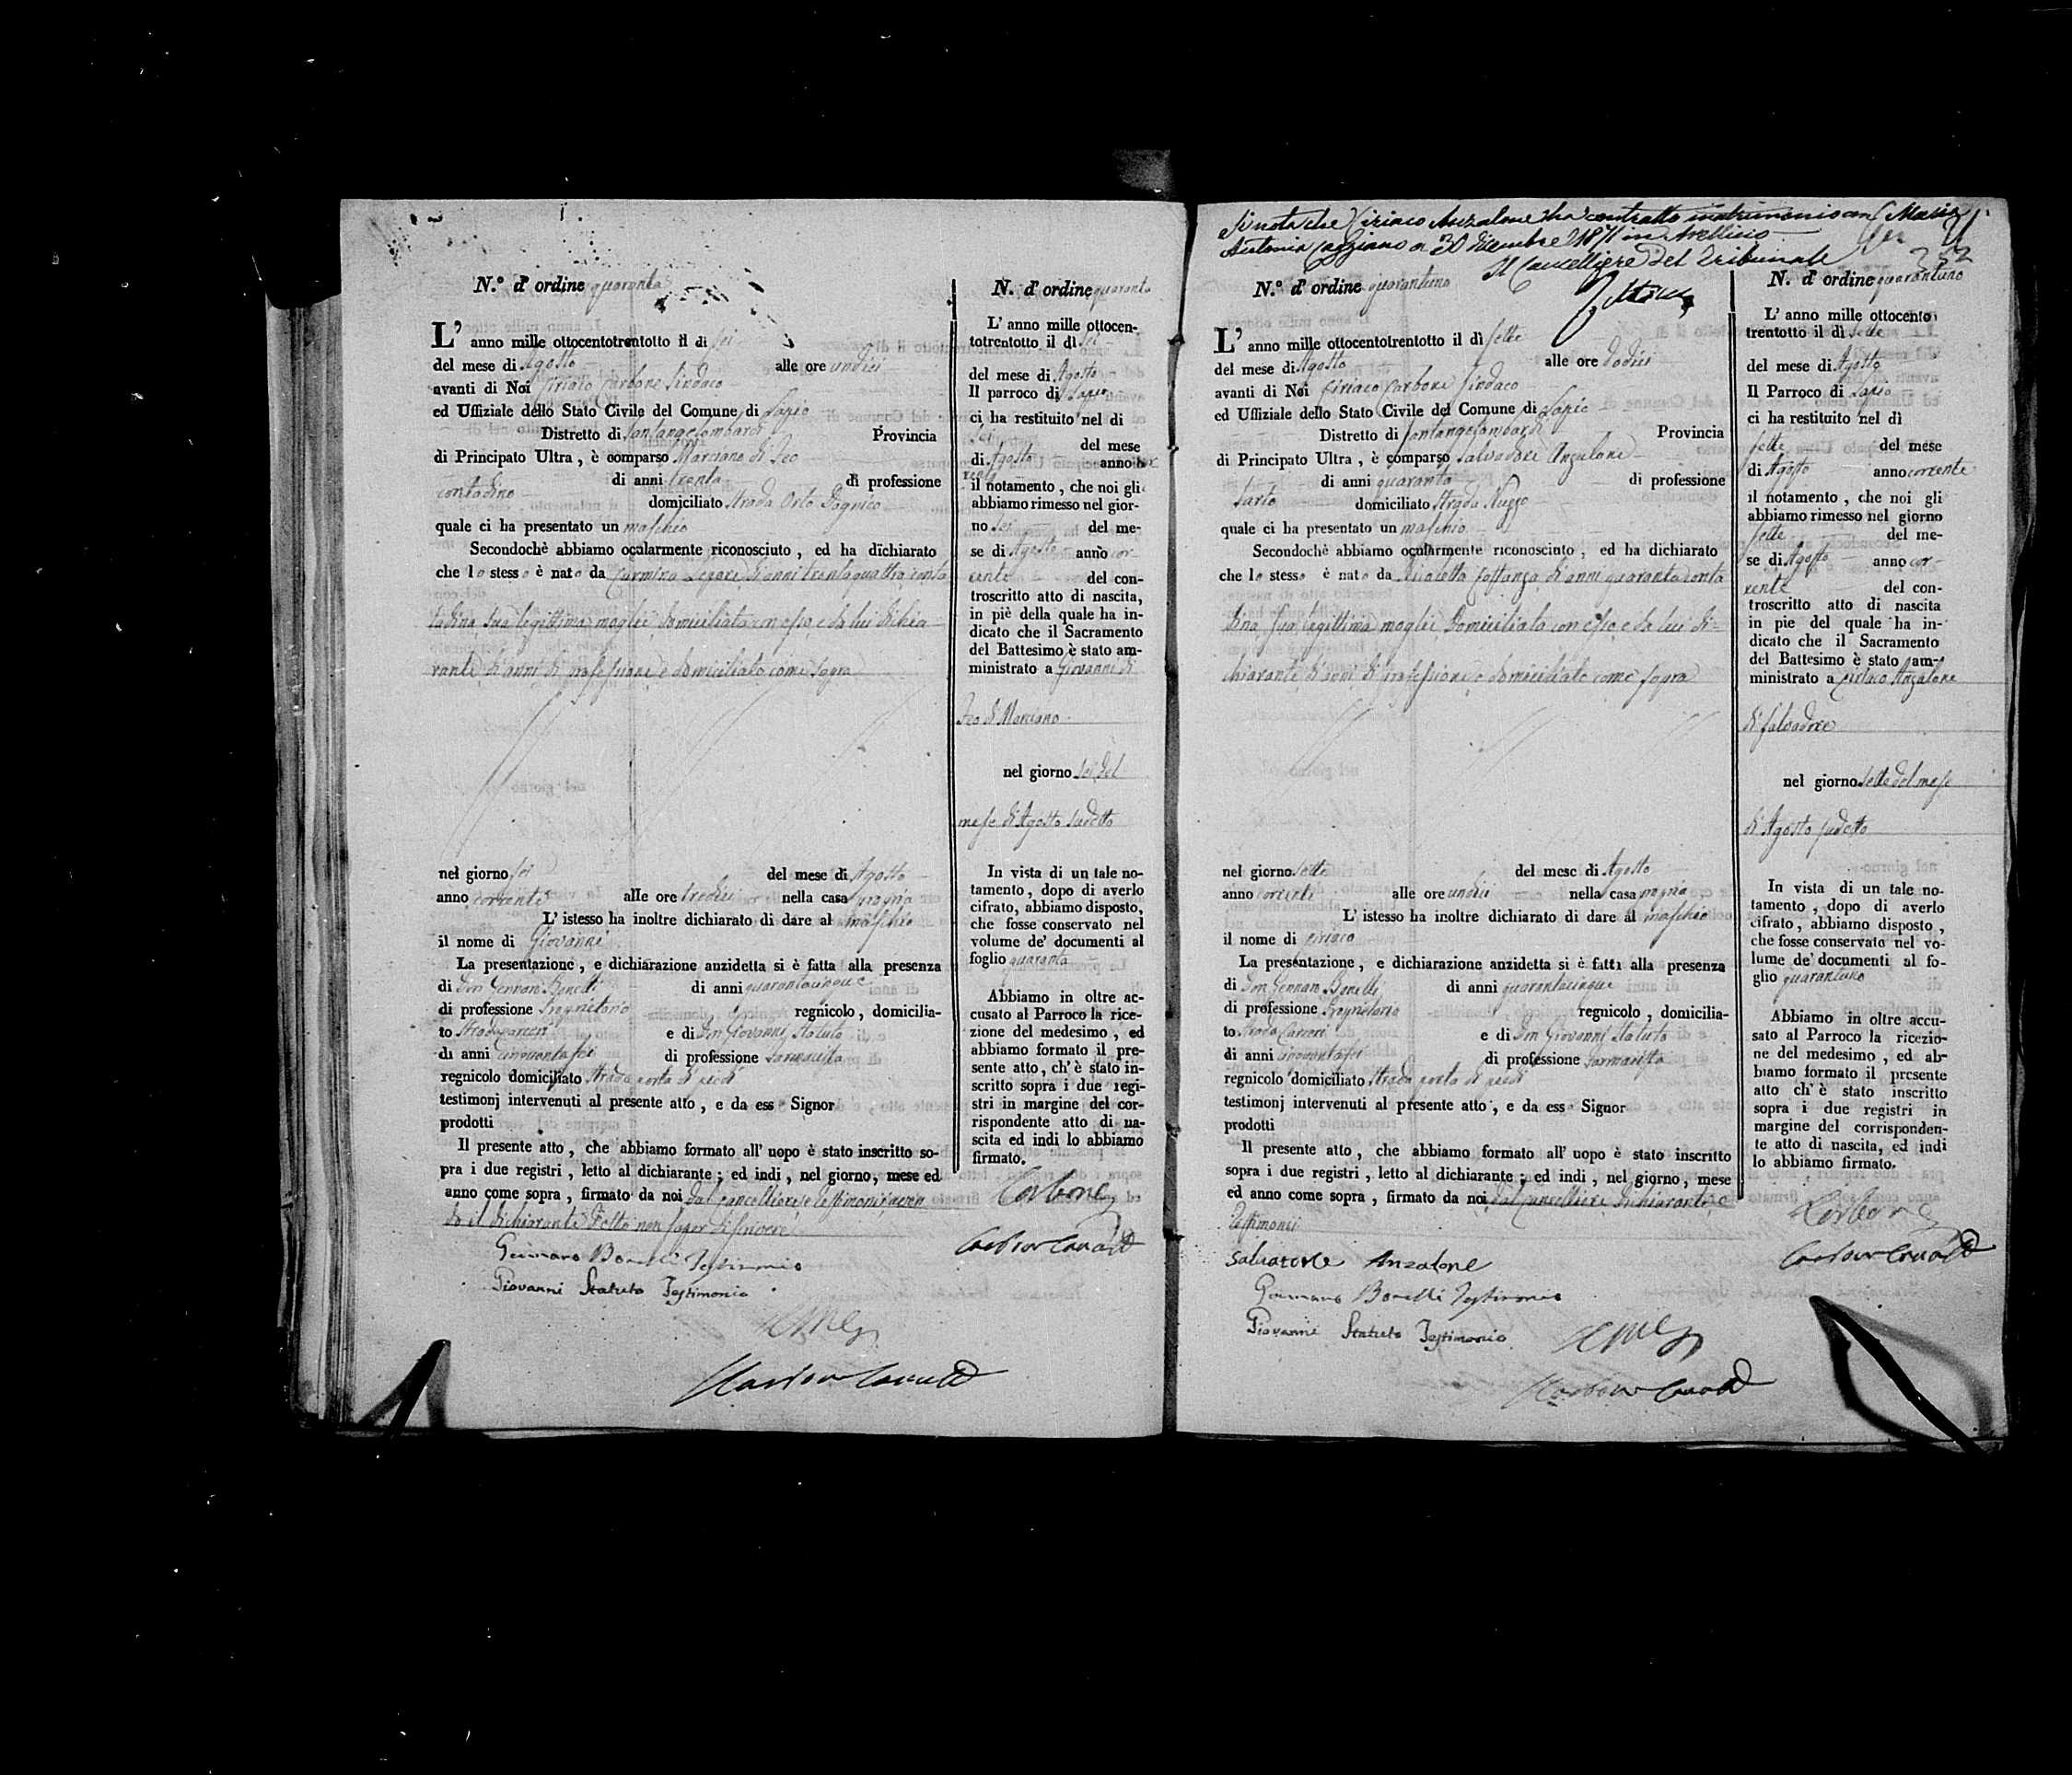 N.° d' ordine quaranta
L' anno mille ottocentotrentotto il dì sei
del mese di Agosto alle ore undici
avanti di Noi Ciriaco Carbone Sindaco
ed Uffiziale dello Stato Civile del Comune di Lapio
Distretto di Santangelombardi Provincia
di Principato Ultra, è comparso Marciano di Feo
di anni trenta di professione
contadino domiciliato Strada Orto
quale ci ha presentato un maschio
Secondochè abbiamo ocularmente riconosciuto, ed ha dichiarato
che lo stesso è nato da Carmina di anni trentaquattro conta
dina sua legittima moglie domiciliata con esso, e da lui dichia
rante di anni di professione e domiciliato come sopra
nel giorno sei del mese di Agosto
anno corrente alle ore tredici nella casa propria
L' istesso ha inoltre dichiarato di dare al maschio
il nome di Giovanni
La presentazione, e dichiarazione anzidetta si è fatta alla presenza
di Don Gennaro Bonelli di anni quarantacinque
di professione Proprietario regnicolo, domicilia-
to Strada Carceri e di Don Giovanni Statuto
di anni cinquantasei di professione Farmacista
regnicolo domiciliato Strada porta di piedi
testimonj intervenuti al presente atto, e da ess Signor
prodotti
Il presente atto, che abbiamo formato all' uopo è stato inscritto so-
pra i due registri, letto al dichiarante; ed indi, nel giorno, mese ed
anno come sopra, firmato da noi dal Cancelliere e testimonj aven
do il dichiarante detto non saper di scrivere
Gennaro Bonelli Testimonio
Giovanni Statuto Testimonio
N. d' ordine quaranta
L' anno mille ottocen-
totrentotto il dì sei
del mese di Agosto
Il parroco di Lapio
ci ha restituito nel di
sei del mese
di Agosto anno cor
rente
il notamento, che noi gli
abbiamo rimesso nel gior-
no sei del me-
se di Agosto anno cor-
rente del con-
troscritto atto di nascita,
in piè della quale ha in-
dicato che il Sacramento
del Battesimo è stato am-
ministrato a Giovanni di
Feo di Marciano
nel giorno sei del
mese di Agosto sudetto
In vista di un tale no-
tamento, dopo di averlo
cifrato, abbiamo disposto,
che fosse conservato nel
volume de' documenti al
foglio quaranta
Abbiamo in oltre ac-
cusato al Parroco la rice-
zione del medesimo, ed
abbiamo formato il pre-
sente atto, ch' è stato in-
scritto sopra i due regi-
stri in margine del cor-
rispondente atto di na-
scita ed indi lo abbiamo
firmato.
Carbone
Si nota che Ciriaco Anzalone ha contratto matrimonio con Maria
Antonia Caggiano a 30 dicembre 1871 in Avellino
Il Cancelliere del Tribunale
352
N.° d' ordine quarantuno
L' anno mille ottocentotrentotto il dì sette
del mese di Agosto alle ore dodici
avanti di Noi Ciriaco Carbone Sindaco
ed Uffiziale dello Stato Civile del Comune di Lapio
Distretto di Santangelombardi Provincia
di Principato Ultra, è comparso Salvadore Anzalone
di anni quaranta di professione
Sarto domiciliato Strada
quale ci ha presentato un maschio
Secondochè abbiamo ocularmente riconosciuto, ed ha dichiarato
che lo stesso è nato da Costanza di anni quaranta conta
dina sua legittima moglie domiciliata con esso, e da lui di=
chiarante di anni di professione, e domiciliato come sopra
nel giorno sette del mese di Agosto
anno corrente alle ore undici nella casa propria
L' istesso ha inoltre dichiarato di dare al maschio
il nome di Ciriaco
La presentazione, e dichiarazione anzidetta si è fatta alla presenza
di Don Gennaro Bonelli di anni quarantacinque
di professione Proprietario regnicolo, domicilia-
to Strada Carceri e di Don Giovanni Statuto
di anni cinquantasei di professione Farmacista
regnicolo domiciliato Strada porta di piedi
testimonj intervenuti al presente atto, e da ess Signor
prodotti
Il presente atto, che abbiamo formato all' uopo è stato inscritto
sopra i due registri, letto al dichiarante; ed indi, nel giorno, mese
ed anno come sopra, firmato da noi dal Cancelliere Dichiarante, e
testimonii
Salvatore Anzalone
Gennaro Bonelli Testimonio
Giovanni Statuto Testimonio
N. d' ordine quarantuno
L' anno mille ottocento
trentotto il dì sette
del mese di Agosto
Il Parroco di Lapio
ci ha restituito nel dì
sette del mese
di Agosto anno corrente
il notamento, che noi gli
abbiamo rimesso nel giorno
sette del me-
se di Agosto anno cor-
rente del con-
troscritto atto di nascita
in pie del quale ha in-
dicato che il Sacramento
del Battesimo è stato am-
ministrato a Ciriaco Anzalone
di Salvadore
nel giorno sette del mese
di Agosto sudetto
In vista di un tale no-
tamento, dopo di averlo
cifrato, abbiamo disposto,
che fosse conservato nel vo-
lume de' documenti al fo-
glio quarantuno
Abbiamo in oltre accu-
sato al Parroco la ricezio-
ne del medesimo, ed ab-
biamo formato il presente
atto ch' è stato inscritto
sopra i due registri in
margine del corrisponden-
te atto di nascita, ed indi
lo abbiamo firmato.
Carbone